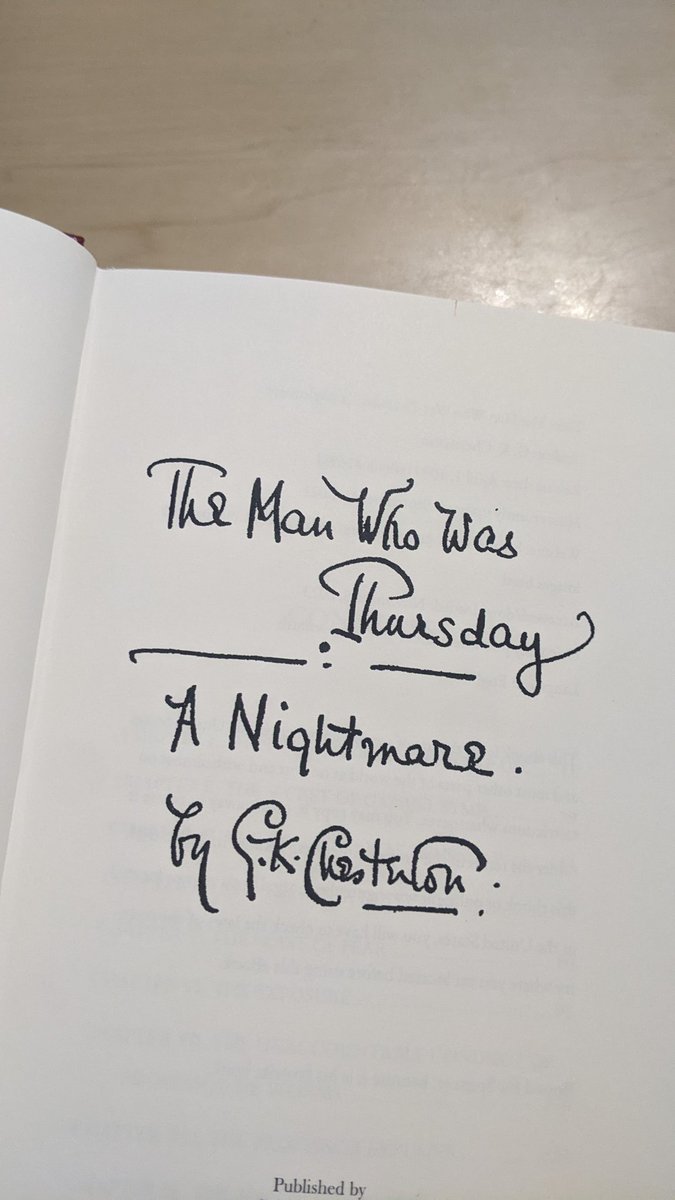 The Man Who Was
Thursday
:
A Nightmare.
by G.K. Chesterton.
Published by